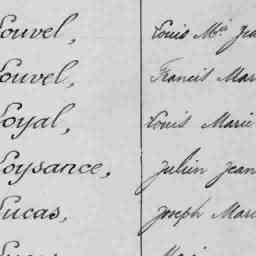 Louvel, Louis Mie Jea
Louvel, Francis Mar
Loyal, Louis Marie
Loysance, Julien Jean
Lucas, Joseph Mari